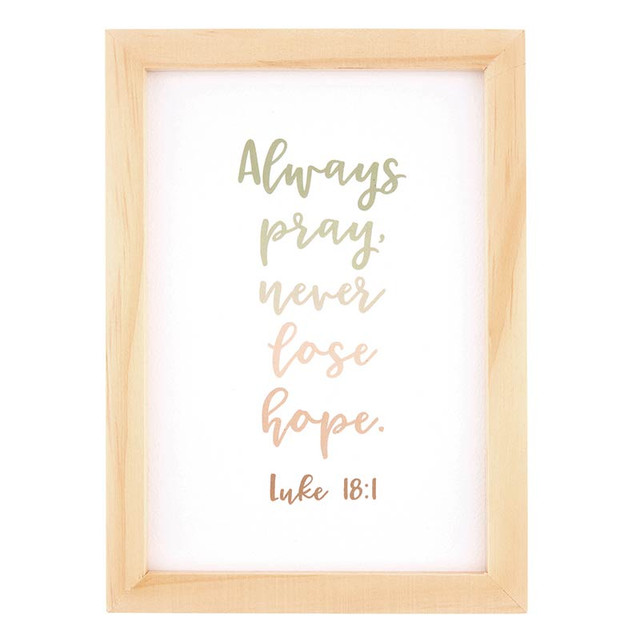 Always
pray,
never
lose
hope.
Luke 18:1